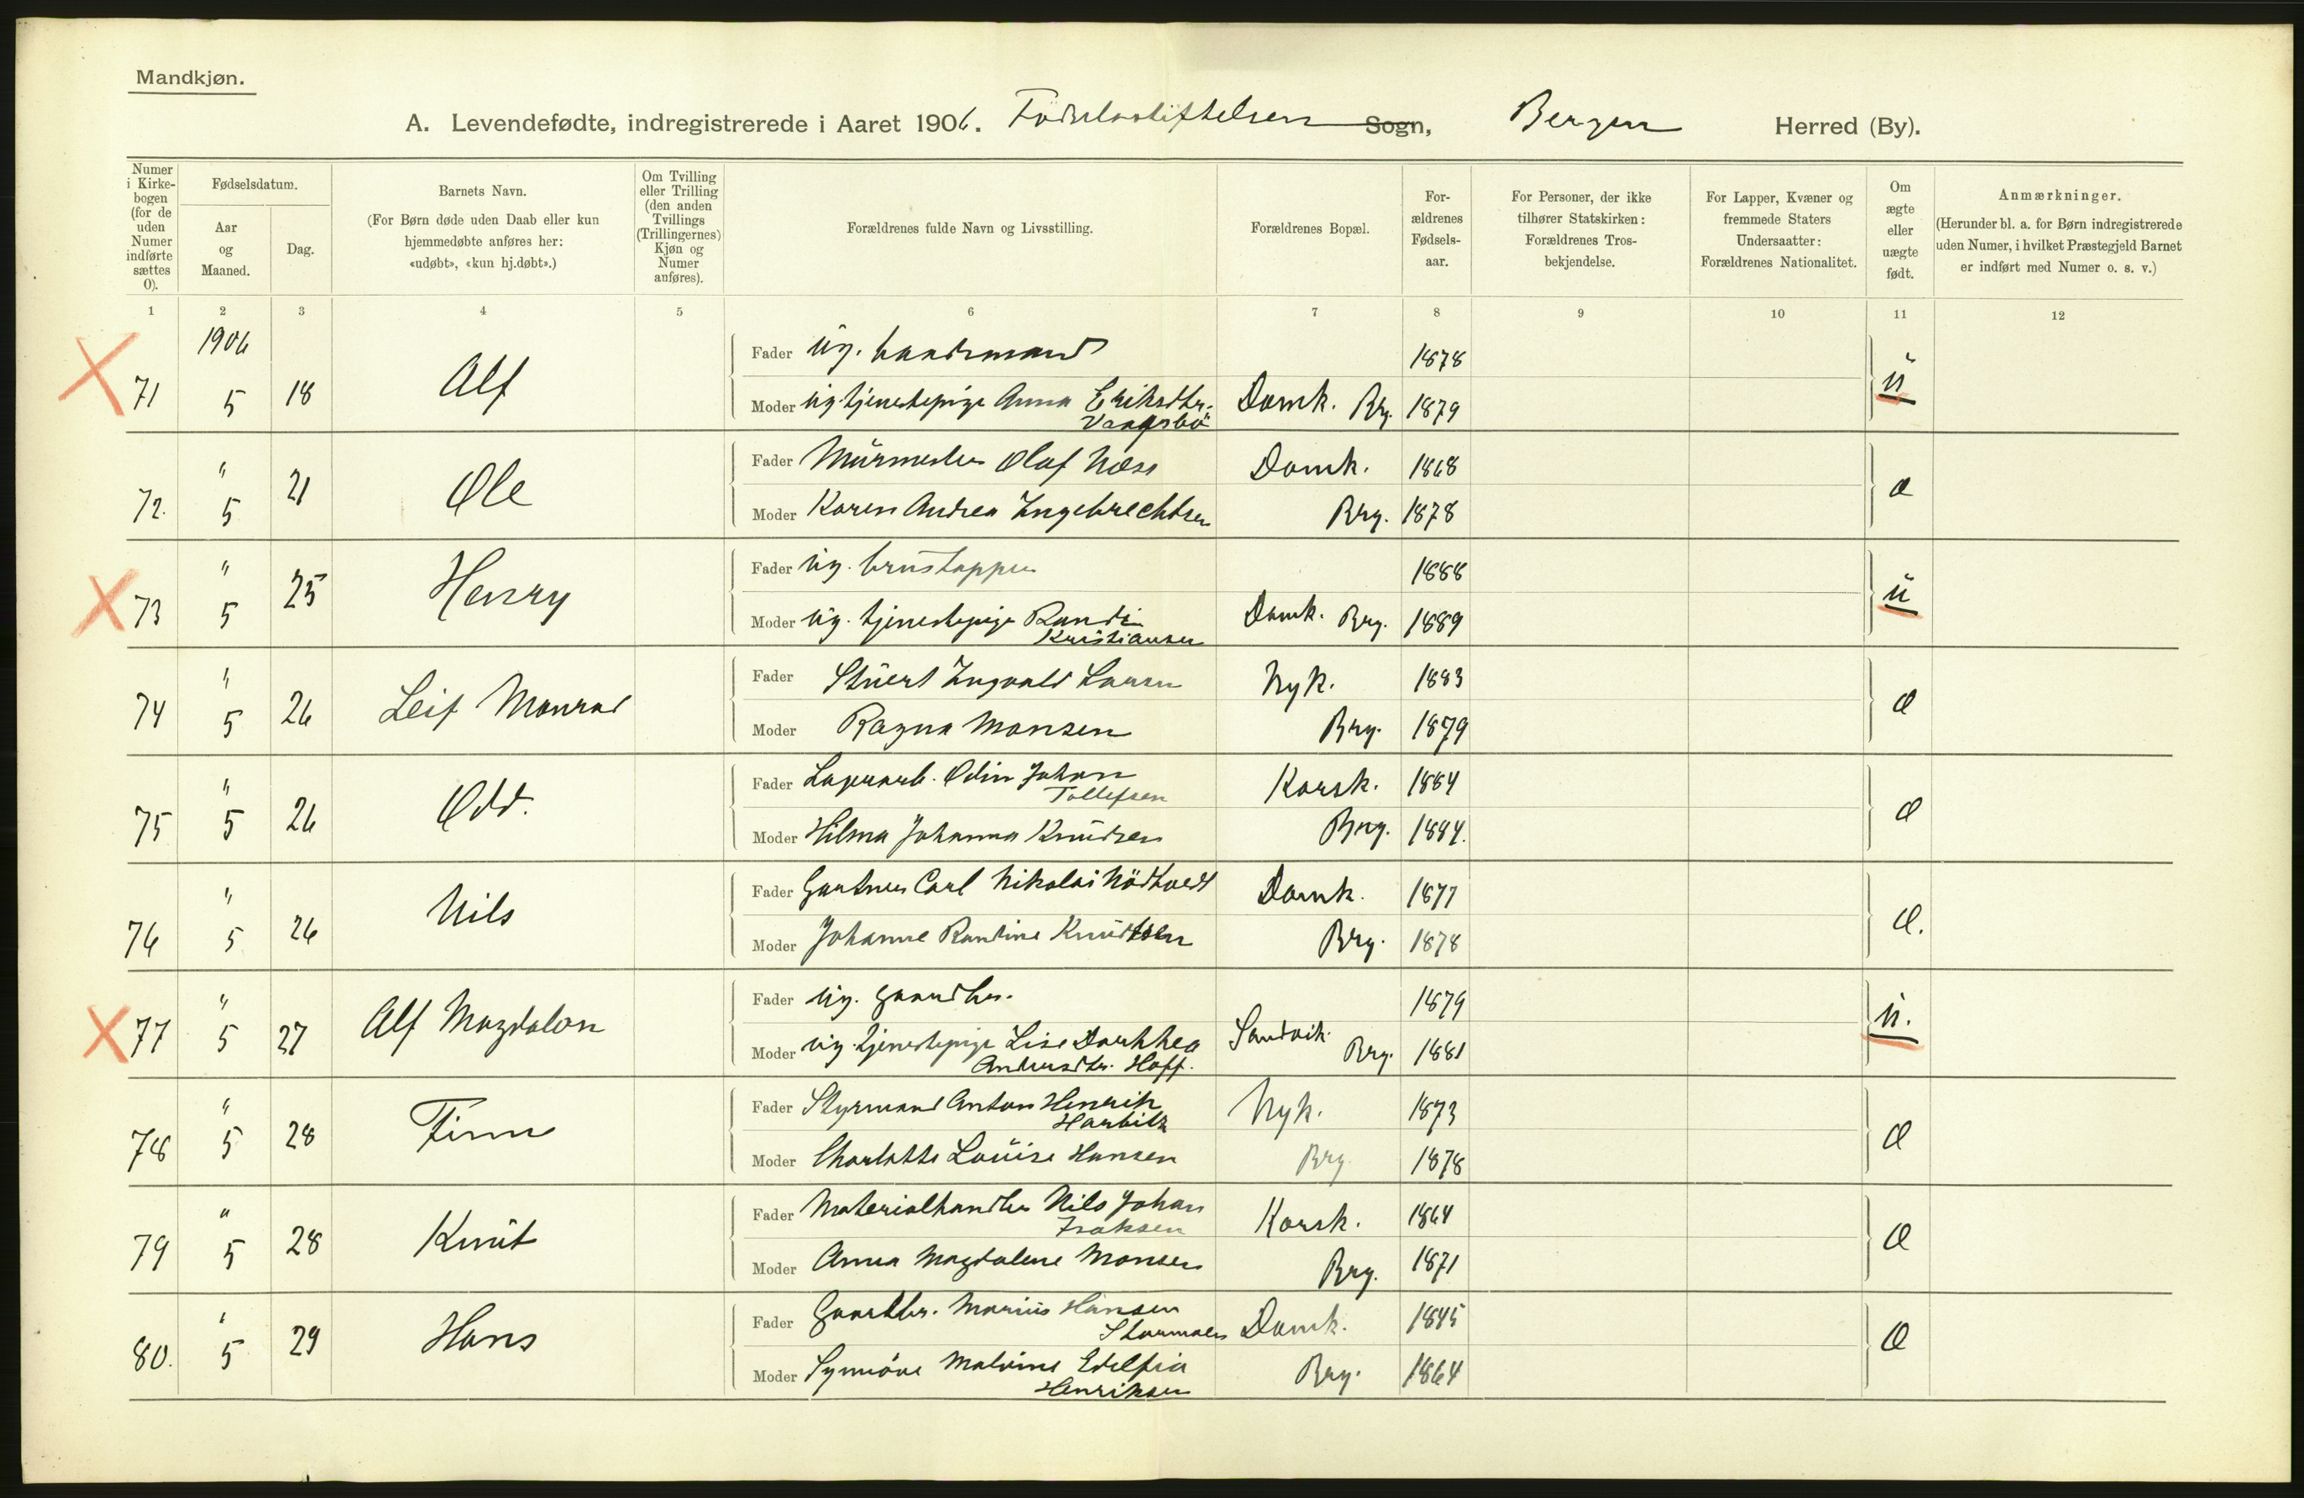 Mandkjøn.
A. Levendefødte, indregistrerede i Aaret 1906. Fødselsstiftelsen Sogn, Bergen Herred (By).
Numer i Kirkebogen (for de uden Numer indførte sættes 0).
Fødselsdatum.
Aar og Maaned.
Dag.
Barnets Navn.
(For Børn døde uden Daab eller kun hjemmedøbte anføres her: «udøbt», «kun hj.døbt».)
Om Tvilling eller Trilling (den anden Tvillings (Trillingernes) Kjøn og Numer anføres).
Forældrenes fulde Navn og Livsstilling.
Forældrenes Bopæl.
For-ældrenes Fødsels-aar.
For Personer, der ikke tilhører Statskirken: Forældrenes Tros-bekjendelse.
For Lapper, Kvæner og fremmede Staters Undersaatter: Forældrenes Nationalitet.
Om ægte eller uægte født.
Anmærkninger.
(Herunder bl. a. for Børn indregistrerede uden Numer, i hvilket Præstegjeld Barnet er indført med Numer o. s. v.)
1 2 3 4 5 6 7 8 9 10 11 12
1906
Fader ug. 1878
71 5 18 Alf Moder ug. tjenestepige Anna Eriksdtr. Domk. Brg. 1879 ü
Vangsbö
Fader Mürmester Olaf Næss Domk. 1868
72. " 5 21 Ole Moder Karen Andrea Ingebrechtsen Brg. 1878 æ
Fader üg. 1888
73 " 5 25 Henry Moder üg. tjenestepige Randi Domk. Brg. 1889 ü
Kristiansen
Fader Stüert Ingvald Larsen Nyk. 1883
74 " 5 26 Leif Monrad Moder Ragna Monsen Brg. 1879 æ
Fader Lagerarb. Odin Johan Korsk. 1884
Tollefsen
75 " 5 26 Odd. Moder Hilma Johanna Knüdsen Brg. 1884. æ
Fader Gartner Carl Nikolai Nödtvedt Domk. 1877
76 " 5 26 Nils Moder Johanne Randine Knüdtsen Brg. 1878 æ.
Fader üg. gaardbr. 1879
77 " 5 27 Alf Magdalon Moder üg. tjenestepige Lise Dorthea Sandvik. Brg. 1881 ü.
Andersdtr. Hoff.
Fader Styrmand Anton Henrik Nyk. 1873
Harbitz
78 " 5 28 Finn Moder Charlotte Loüise Hansen Brg 1878 æ
Fader Materialhandler Nils Johan Korsk. 1864
Isaksen
79 " 5 28 Knüt Moder Anna Magdalene Monsen Brg. 1871 æ
Fader Gaardbr. Marius Hansen Domk. 1845
80. " 5 29 Hans Moder Synnöve Malvine Edelfia Brg. 1864 æ
Henriksen